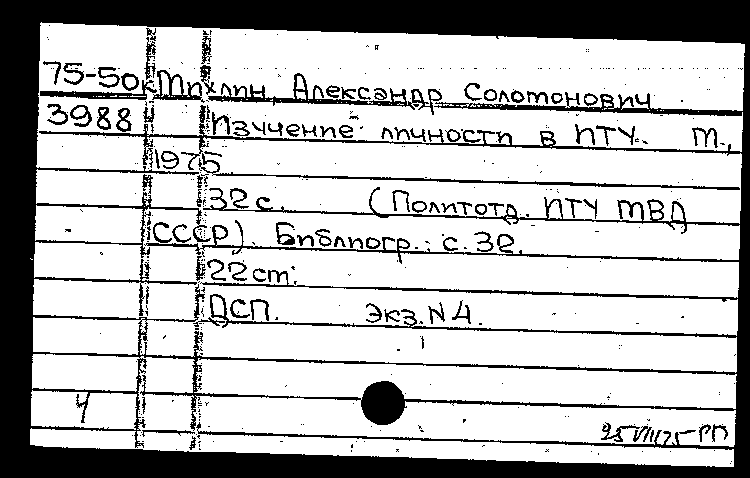 75-50к Михлин, Александр Соломонович
3988 Изучение личности в ИТУ. М.,
1975
32 с. (Политотд. ИТУ МВД
СССР). Библиогр.: с. 32.
22 см.
ДСП. Экз. N 4.
4
25/VII 75 - РП